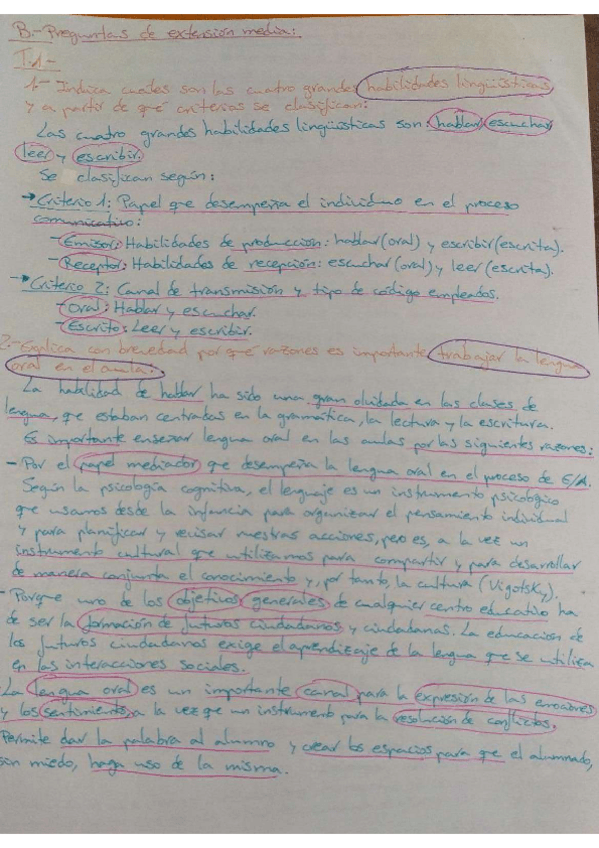 B.- Preguntas de extensión media:
T.1-
1.- Indica cuáles son las cuatro grandes habilidades lingüísticas
y a partir de qué criterios se clasifican:
Las cuatro grandes habilidades lingüísticas son: hablar, escuchar,
leer y escribir.
Se clasifican según:
→ Criterio 1: Papel que desempeña el individuo en el proceso
comunicativo:
- Emisor: Habilidades de producción: hablar (oral) y escribir (escrita).
- Receptor: Habilidades de recepción: escuchar (oral) y leer (escrita).
→ Criterio 2: Canal de transmisión y tipo de código empleados.
- Oral: Hablar y escuchar.
- Escrito: Leer y escribir.
2.- Explica con brevedad por qué razones es importante trabajar la lengua
oral en el aula.
La habilidad de hablar ha sido una gran olvidada en las clases de
lengua, que estaban centradas en la gramática, la lectura y la escritura.
Es importante enseñar lengua oral en las aulas por las siguientes razones:
- Por el papel mediador que desempeña la lengua oral en el proceso de E/A.
Según la psicología cognitiva, el lenguaje es un instrumento psicológico
que usamos desde la infancia para organizar el pensamiento individual
y para planificar y revisar nuestras acciones, pero es, a la vez un
instrumento cultural que utilizamos para compartir y para desarrollar
de manera conjunta el conocimiento y, por tanto, la cultura (Vigotsky).
- Porque uno de los objetivos generales de cualquier centro educativo ha
de ser la formación de futuros ciudadanos y ciudadanas. La educación de
los futuros ciudadanos exige el aprendizaje de la lengua que se utiliza
en las interacciones sociales.
La lengua oral es un importante canal para la expresión de las emociones
y los sentimientos a la vez que un instrumento para la resolución de conflictos.
Permite dar la palabra al alumno y crear los espacios para que el alumnado,
sin miedo, haga uso de la misma.